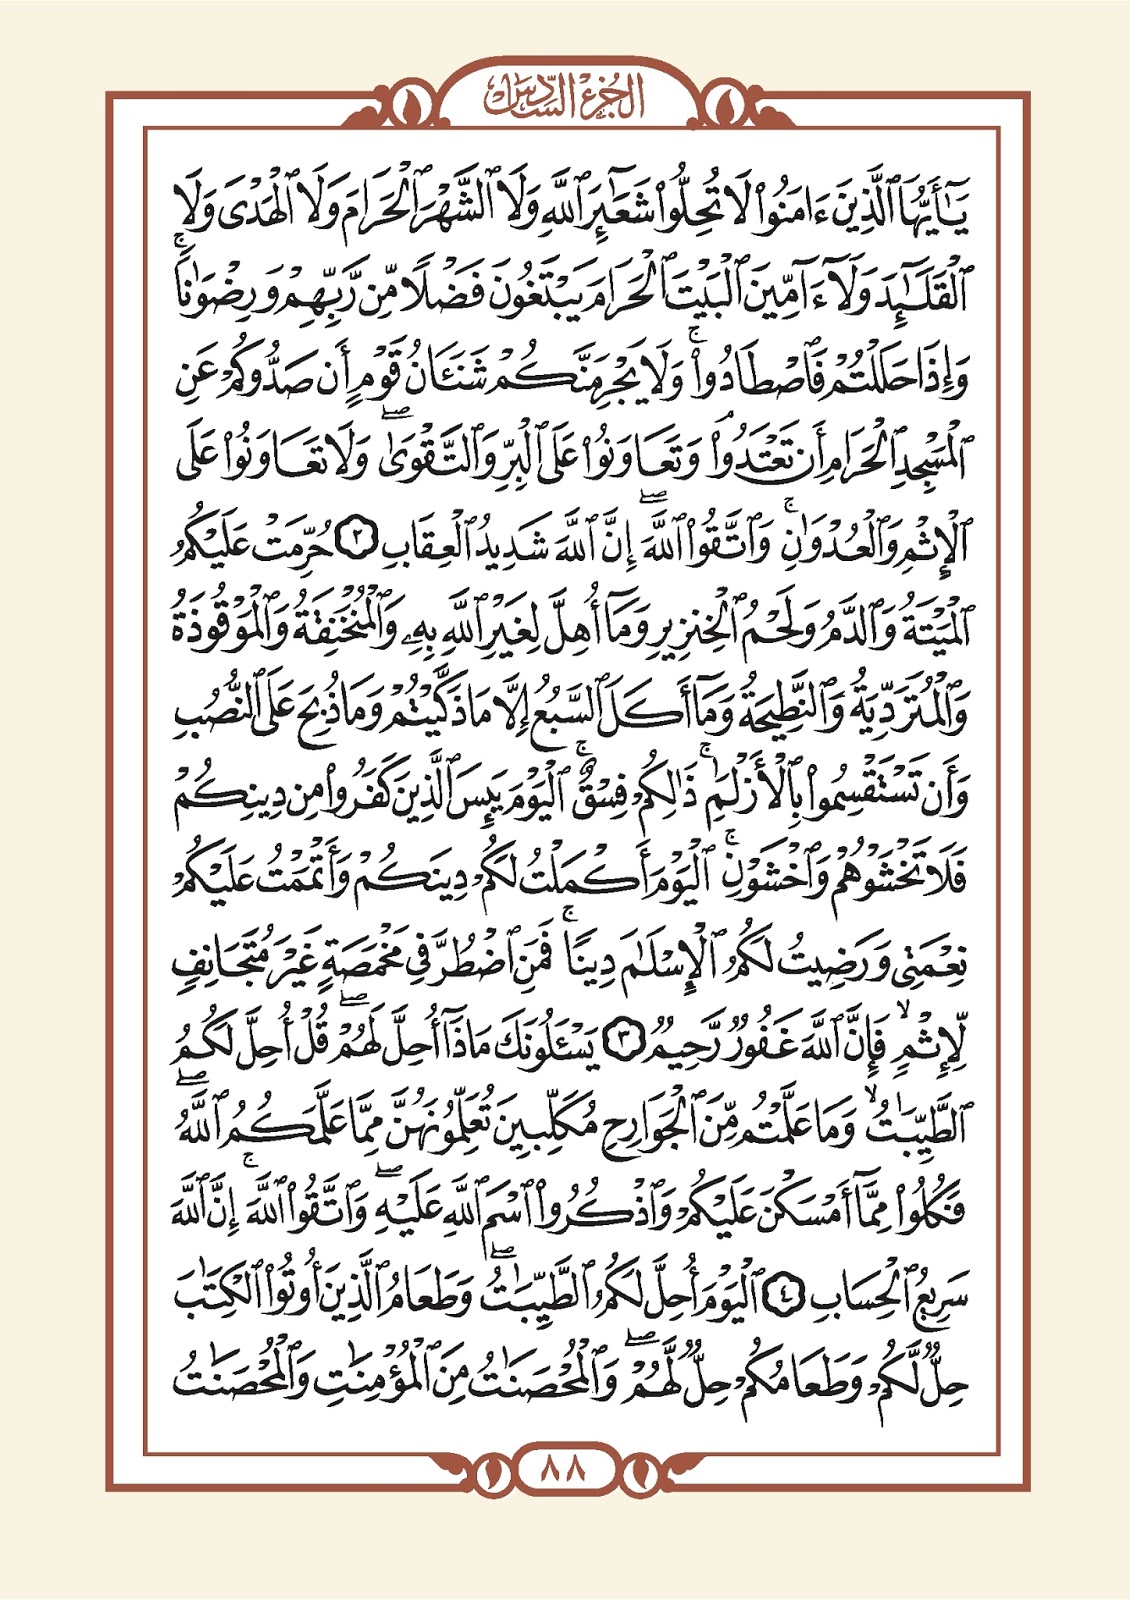 الجزء السادس
يَـٰٓأَيُّهَا ٱلَّذِينَ ءَامَنُوا۟ لَا تُحِلُّوا۟ شَعَـٰٓئِرَ ٱللَّهِ وَلَا ٱلشَّهْرَ ٱلْحَرَامَ وَلَا ٱلْهَدْىَ وَلَا
ٱلْقَلَـٰٓئِدَ وَلَآ ءَآمِّينَ ٱلْبَيْتَ ٱلْحَرَامَ يَبْتَغُونَ فَضْلًا مِّن رَّبِّهِمْ وَرِضْوَٰنًا ۚ
وَإِذَا حَلَلْتُمْ فَٱصْطَادُوا۟ ۚ وَلَا يَجْرِمَنَّكُمْ شَنَـَٔانُ قَوْمٍ أَن صَدُّوكُمْ عَنِ
ٱلْمَسْجِدِ ٱلْحَرَامِ أَن تَعْتَدُوا۟ ۘ وَتَعَاوَنُوا۟ عَلَى ٱلْبِرِّ وَٱلتَّقْوَىٰ ۖ وَلَا تَعَاوَنُوا۟ عَلَى
ٱلْإِثْمِ وَٱلْعُدْوَٰنِ ۚ وَٱتَّقُوا۟ ٱللَّهَ ۖ إِنَّ ٱللَّهَ شَدِيدُ ٱلْعِقَابِ ٢ حُرِّمَتْ عَلَيْكُمُ
ٱلْمَيْتَةُ وَٱلدَّمُ وَلَحْمُ ٱلْخِنزِيرِ وَمَآ أُهِلَّ لِغَيْرِ ٱللَّهِ بِهِۦ وَٱلْمُنْخَنِقَةُ وَٱلْمَوْقُوذَةُ
وَٱلْمُتَرَدِّيَةُ وَٱلنَّطِيحَةُ وَمَآ أَكَلَ ٱلسَّبُعُ إِلَّا مَا ذَكَّيْتُمْ وَمَا ذُبِحَ عَلَى ٱلنُّصُبِ
وَأَن تَسْتَقْسِمُوا۟ بِٱلْأَزْلَـٰمِ ۚ ذَٰلِكُمْ فِسْقٌ ۗ ٱلْيَوْمَ يَئِسَ ٱلَّذِينَ كَفَرُوا۟ مِن دِينِكُمْ
فَلَا تَخْشَوْهُمْ وَٱخْشَوْنِ ۚ ٱلْيَوْمَ أَكْمَلْتُ لَكُمْ دِينَكُمْ وَأَتْمَمْتُ عَلَيْكُمْ
نِعْمَتِى وَرَضِيتُ لَكُمُ ٱلْإِسْلَـٰمَ دِينًا ۚ فَمَنِ ٱضْطُرَّ فِى مَخْمَصَةٍ غَيْرَ مُتَجَانِفٍ
لِّإِثْمٍ ۙ فَإِنَّ ٱللَّهَ غَفُورٌ رَّحِيمٌ ٣ يَسْـَٔلُونَكَ مَاذَآ أُحِلَّ لَهُمْ ۖ قُلْ أُحِلَّ لَكُمُ
ٱلطَّيِّبَـٰتُ ۙ وَمَا عَلَّمْتُم مِّنَ ٱلْجَوَارِحِ مُكَلِّبِينَ تُعَلِّمُونَهُنَّ مِمَّا عَلَّمَكُمُ ٱللَّهُ ۖ
فَكُلُوا۟ مِمَّآ أَمْسَكْنَ عَلَيْكُمْ وَٱذْكُرُوا۟ ٱسْمَ ٱللَّهِ عَلَيْهِ ۖ وَٱتَّقُوا۟ ٱللَّهَ ۚ إِنَّ ٱللَّهَ
سَرِيعُ ٱلْحِسَابِ ٤ ٱلْيَوْمَ أُحِلَّ لَكُمُ ٱلطَّيِّبَـٰتُ ۖ وَطَعَامُ ٱلَّذِينَ أُوتُوا۟ ٱلْكِتَـٰبَ
حِلٌّ لَّكُمْ وَطَعَامُكُمْ حِلٌّ لَّهُمْ ۖ وَٱلْمُحْصَنَـٰتُ مِنَ ٱلْمُؤْمِنَـٰتِ وَٱلْمُحْصَنَـٰتُ
٨٨